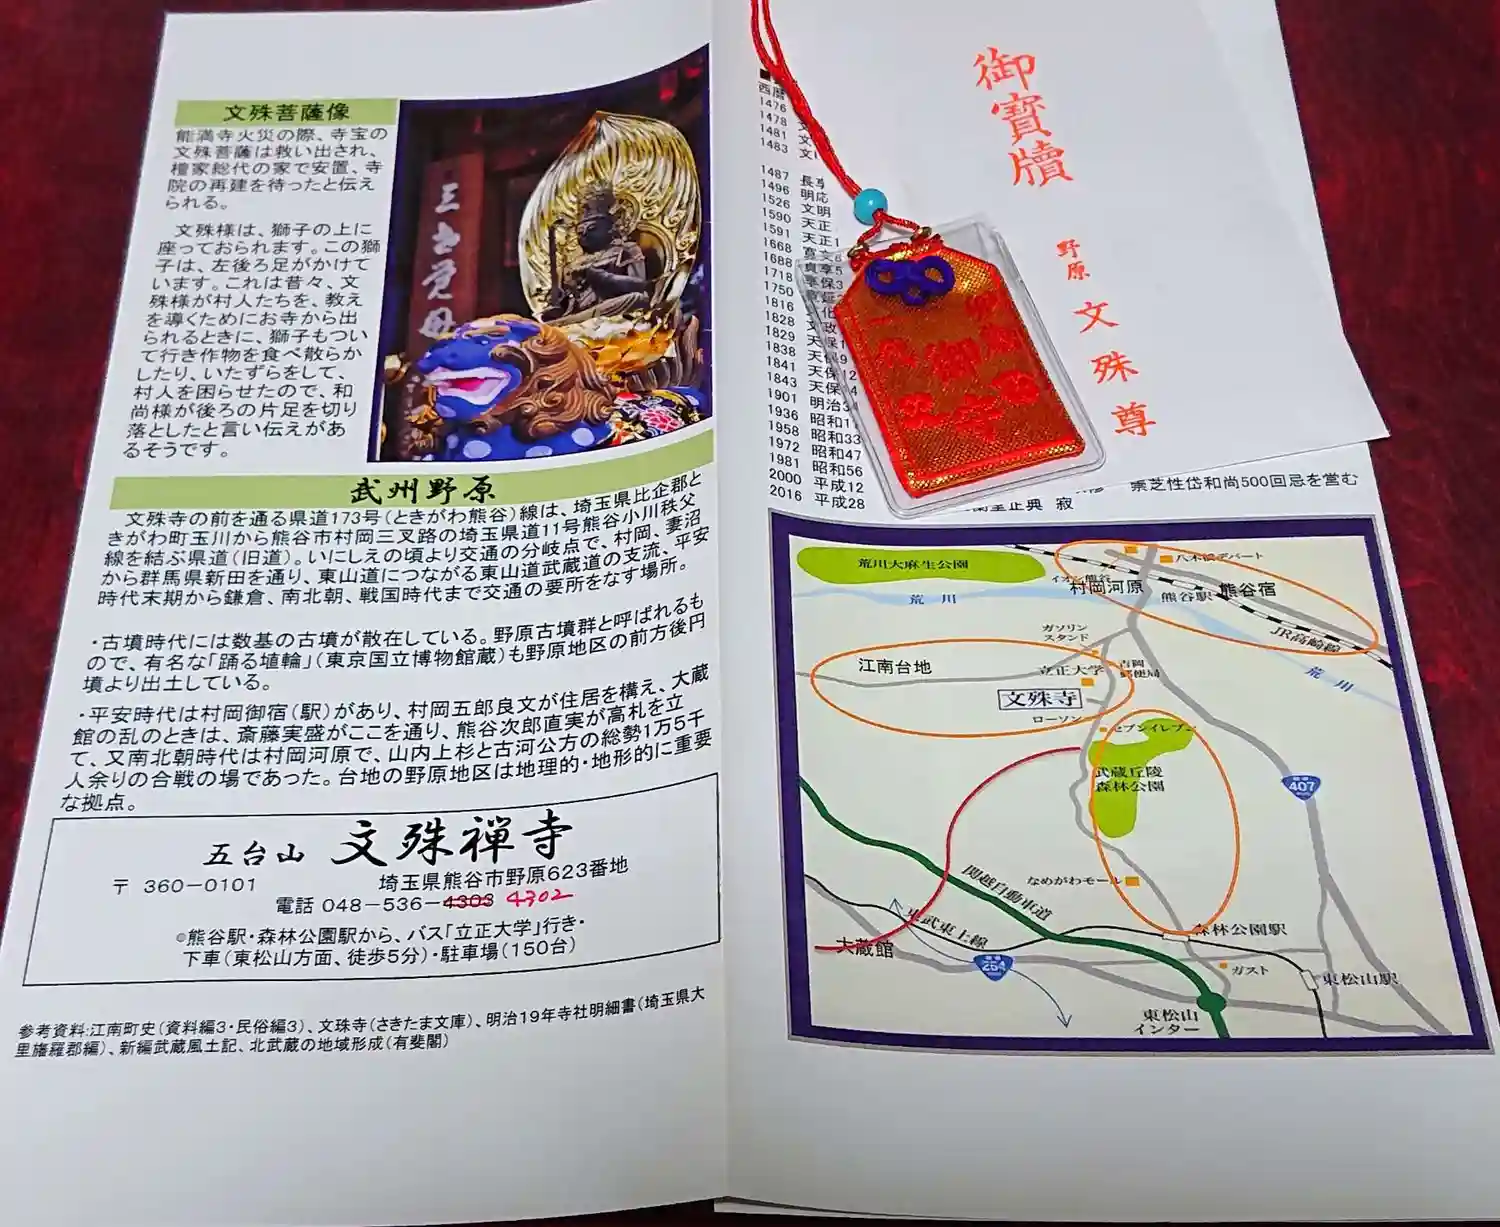 文殊菩薩像
能満寺火災の際、寺宝の
文殊菩薩は救い出され、
檀家総代の家で安置、寺
院の再建を待ったと伝え
られる。
文殊様は、獅子の上に
座っておられます。この獅
子は、左後ろ足がかけて
います。これは昔々、文
殊様が村人たちを、教え
を導くためにお寺から出
られるときに、獅子もつい
て行き作物を食べ散らか
したり、いたずらをして、
村人を困らせたので、和
尚様が後ろの片足を切り
落としたと言い伝えがあ
るそうです。
武州野原
文殊寺の前を通る県道173号(ときがわ熊谷)線は、埼玉県比企郡と
きがわ町玉川から熊谷市村岡三叉路の埼玉県道11号熊谷小川秩父
線を結ぶ県道(旧道)。いにしえの頃より交通の分岐点で、村岡、妻沼
から群馬県新田を通り、東山道につながる東山道武蔵道の支流、平安
時代末期から鎌倉、南北朝、戦国時代まで交通の要所をなす場所。
・古墳時代には数基の古墳が散在している。野原古墳群と呼ばれるも
ので、有名な「踊る埴輪」(東京国立博物館蔵)も野原地区の前方後円
墳より出土している。
・平安時代は村岡御宿(駅)があり、村岡五郎良文が住居を構え、大蔵
館の乱のときは、斎藤実盛がここを通り、熊谷次郎直実が高札を立
て、又南北朝時代は村岡河原で、山内上杉と古河公方の総勢1万5千
人余りの合戦の場であった。台地の野原地区は地理的・地形的に重要
な拠点。
五台山 文殊禅寺
〒 360-0101 埼玉県熊谷市野原623番地
電話 048-536-4303 4302
◎熊谷駅・森林公園駅から、バス「立正大学」行き・
下車(東松山方面、徒歩5分)・駐車場(150台)
参考資料:江南町史(資料編3・民俗編3)、文珠寺(さきたま文庫)、明治19年寺社明細書(埼玉県大
里旛羅郡編)、新編武蔵風土記、北武蔵の地域形成(有斐閣)
御寶牘
野原 文殊尊
西暦
1476
1478 文
1481 文
1483 文
1487 長享
1496 明応
1526 文明
1590 天正
1591 天正1
1668 寛文
1688 貞享5
1718 享保3
1750 寛延
1816 文化
1828 文政
1829 天保1
1838 天保9
1841 天保12
1843 天保14
1901 明治34
1936 昭和11
1958 昭和33
1972 昭和47
1981 昭和56
2000 平成12
2016 平成28
景芝性岱和尚500回忌を営む
里正典 寂
荒川大麻生公園
荒川
イオン熊谷
村岡河原
八木橋デパート
熊谷駅
熊谷宿
JR高崎線
荒川
ガソリン
スタンド
江南台地
立正大学
吉岡
郵便局
文殊寺
ローソン
セブンイレブン
武蔵丘陵
森林公園
407
関越自動車道
なめがわモール
東武東上線
大蔵館
254
森林公園駅
ガスト
東松山駅
東松山
インター